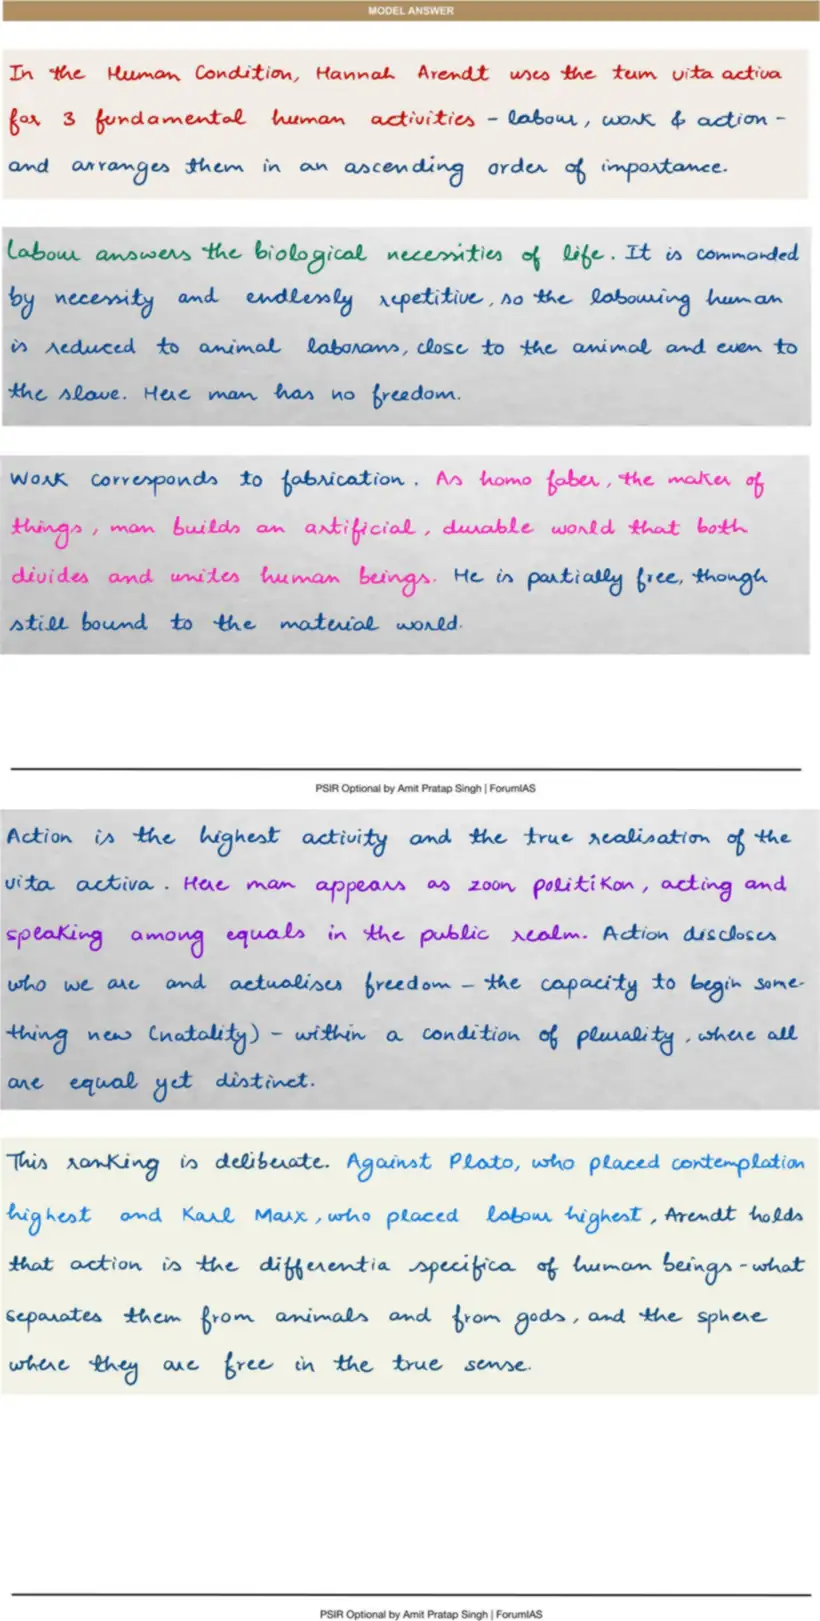 MODEL ANSWER
In the Human Condition, Hannah Arendt uses the term vita activa
for 3 fundamental human activities - labour, work & action -
and arranges them in an ascending order of importance.
Labour answers the biological necessities of life. It is commanded
by necessity and endlessly repetitive, so the labouring human
is reduced to animal laborans, close to the animal and even to
the slave. Here man has no freedom.
Work corresponds to fabrication. As homo faber, the maker of
things, man builds an artificial, durable world that both
divides and unites human beings. He is partially free, though
still bound to the material world.
PSIR Optional by Amit Pratap Singh | ForumIAS
Action is the highest activity and the true realisation of the
vita activa. Here man appears as zoon politikon, acting and
speaking among equals in the public realm. Action discloses
who we are and actualises freedom - the capacity to begin some-
thing new (natality) - within a condition of plurality, where all
are equal yet distinct.
This ranking is deliberate. Against Plato, who placed contemplation
highest and Karl Marx, who placed labour highest, Arendt holds
that action is the differentia specifica of human beings - what
separates them from animals and from gods, and the sphere
where they are free in the true sense.
PSIR Optional by Amit Pratap Singh | ForumIAS